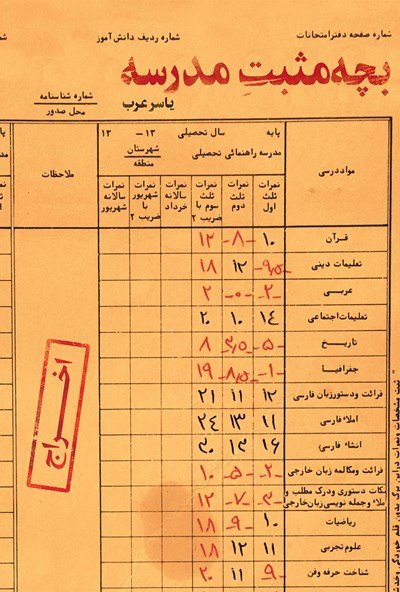 شماره صفحه دفتر امتحانات
شماره ردیف دانش آموز
بچه مثبت مدرسه
یاسر عرب
شماره شناسنامه
محل صدور
پایه سال تحصیلی ۱۳ – ۱۳
مدرسه راهنمائی تحصیلی شهرستان
منطقه
مواد درسی نمرات ثلث اول نمرات ثلث دوم نمرات ثلث سوم با ضریب ۲ نمرات سالانه خرداد نمرات شهریور با ضریب ۲ نمرات سالانه شهریور ملاحظات
قرآن ۱۰ -۸- ۱۲
تعلیمات دینی -۹٫۵- ۱۲ ۱۸
عربی -۲- -۰- ۲
تعلیمات اجتماعی ۱۴ ۱۰ ۲۰
تاریخ -۵- -۳٫۵- ۸
جغرافیا -۱- -۸٫۵- ۱۹
قرائت و دستور زبان فارسی ۱۲ ۱۱ ۲۱
املاء فارسی ۱۱ ۱۳ ۲۴
انشاء فارسی ۱۶ ۱۳ ۳۰
قرائت و مکالمه زبان خارجی -۲- -۵- ۱۰
نکات دستوری و درک مطلب و
املاء و جمله نویسی زبان خارجی -۳- -۷- ۱۲
ریاضیات ۱۰ -۹- ۱۸
علوم تجربی ۱۱ ۱۲ ۱۸
شناخت حرفه و فن -۹- ۱۱ ۲۰
اخراج